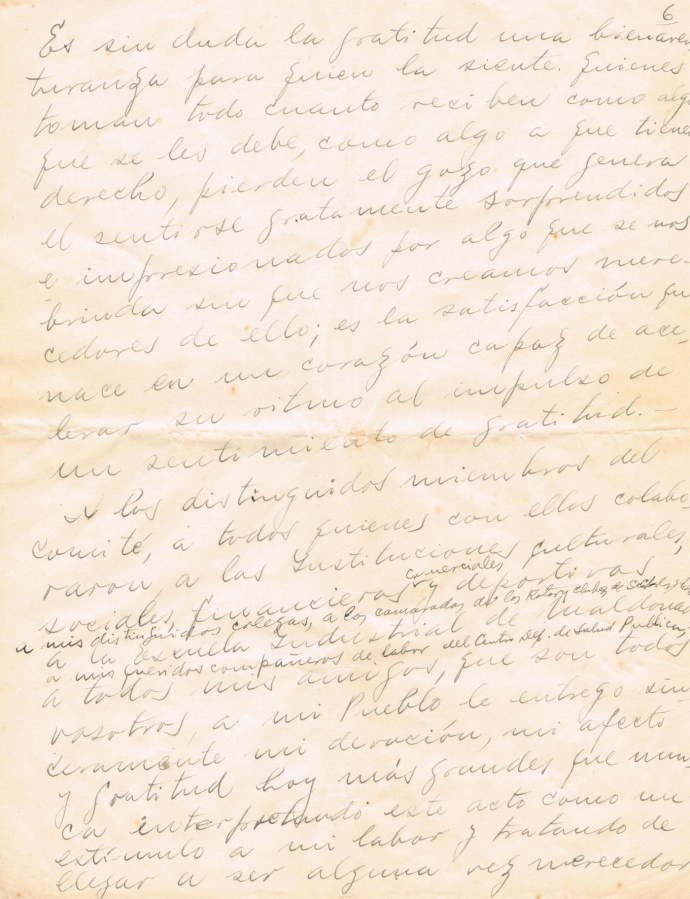 6
Es sin duda la gratitud una bienaven
turanza para quien la siente. Quienes
toman todo cuanto reciben como algo
que se les debe, como algo a que tienen
derecho, pierden el gozo que genera
el sentirse gratamente sorprendidos
e impresionados por algo que se nos
brinda sin que nos creamos mere-
cedores de ello; es la satisfacción que
nace en un corazón capaz de ace-
lerar su ritmo al impulso de
un sentimiento de gratitud.-
A los distinguidos miembros del
comité, a todos quienes con ellos colabo-
raron, a las Instituciones culturales,
comerciales
sociales, financieras y deportivas
a mis distinguidos colegas, a los camaradas de los Rotary Clubes de
a la Escuela Industrial de Maldonado
a mis queridos compañeros de labor del Centro Dep. de Salud Pública,
a todos mis amigos, que son todos
vosotros, a mi Pueblo le entrego sin-
ceramente mi devoción, mi afecto
y gratitud hoy más grandes que nun-
ca interpretando este acto como un
estímulo a mi labor y tratando de
llegar a ser alguna vez merecedor